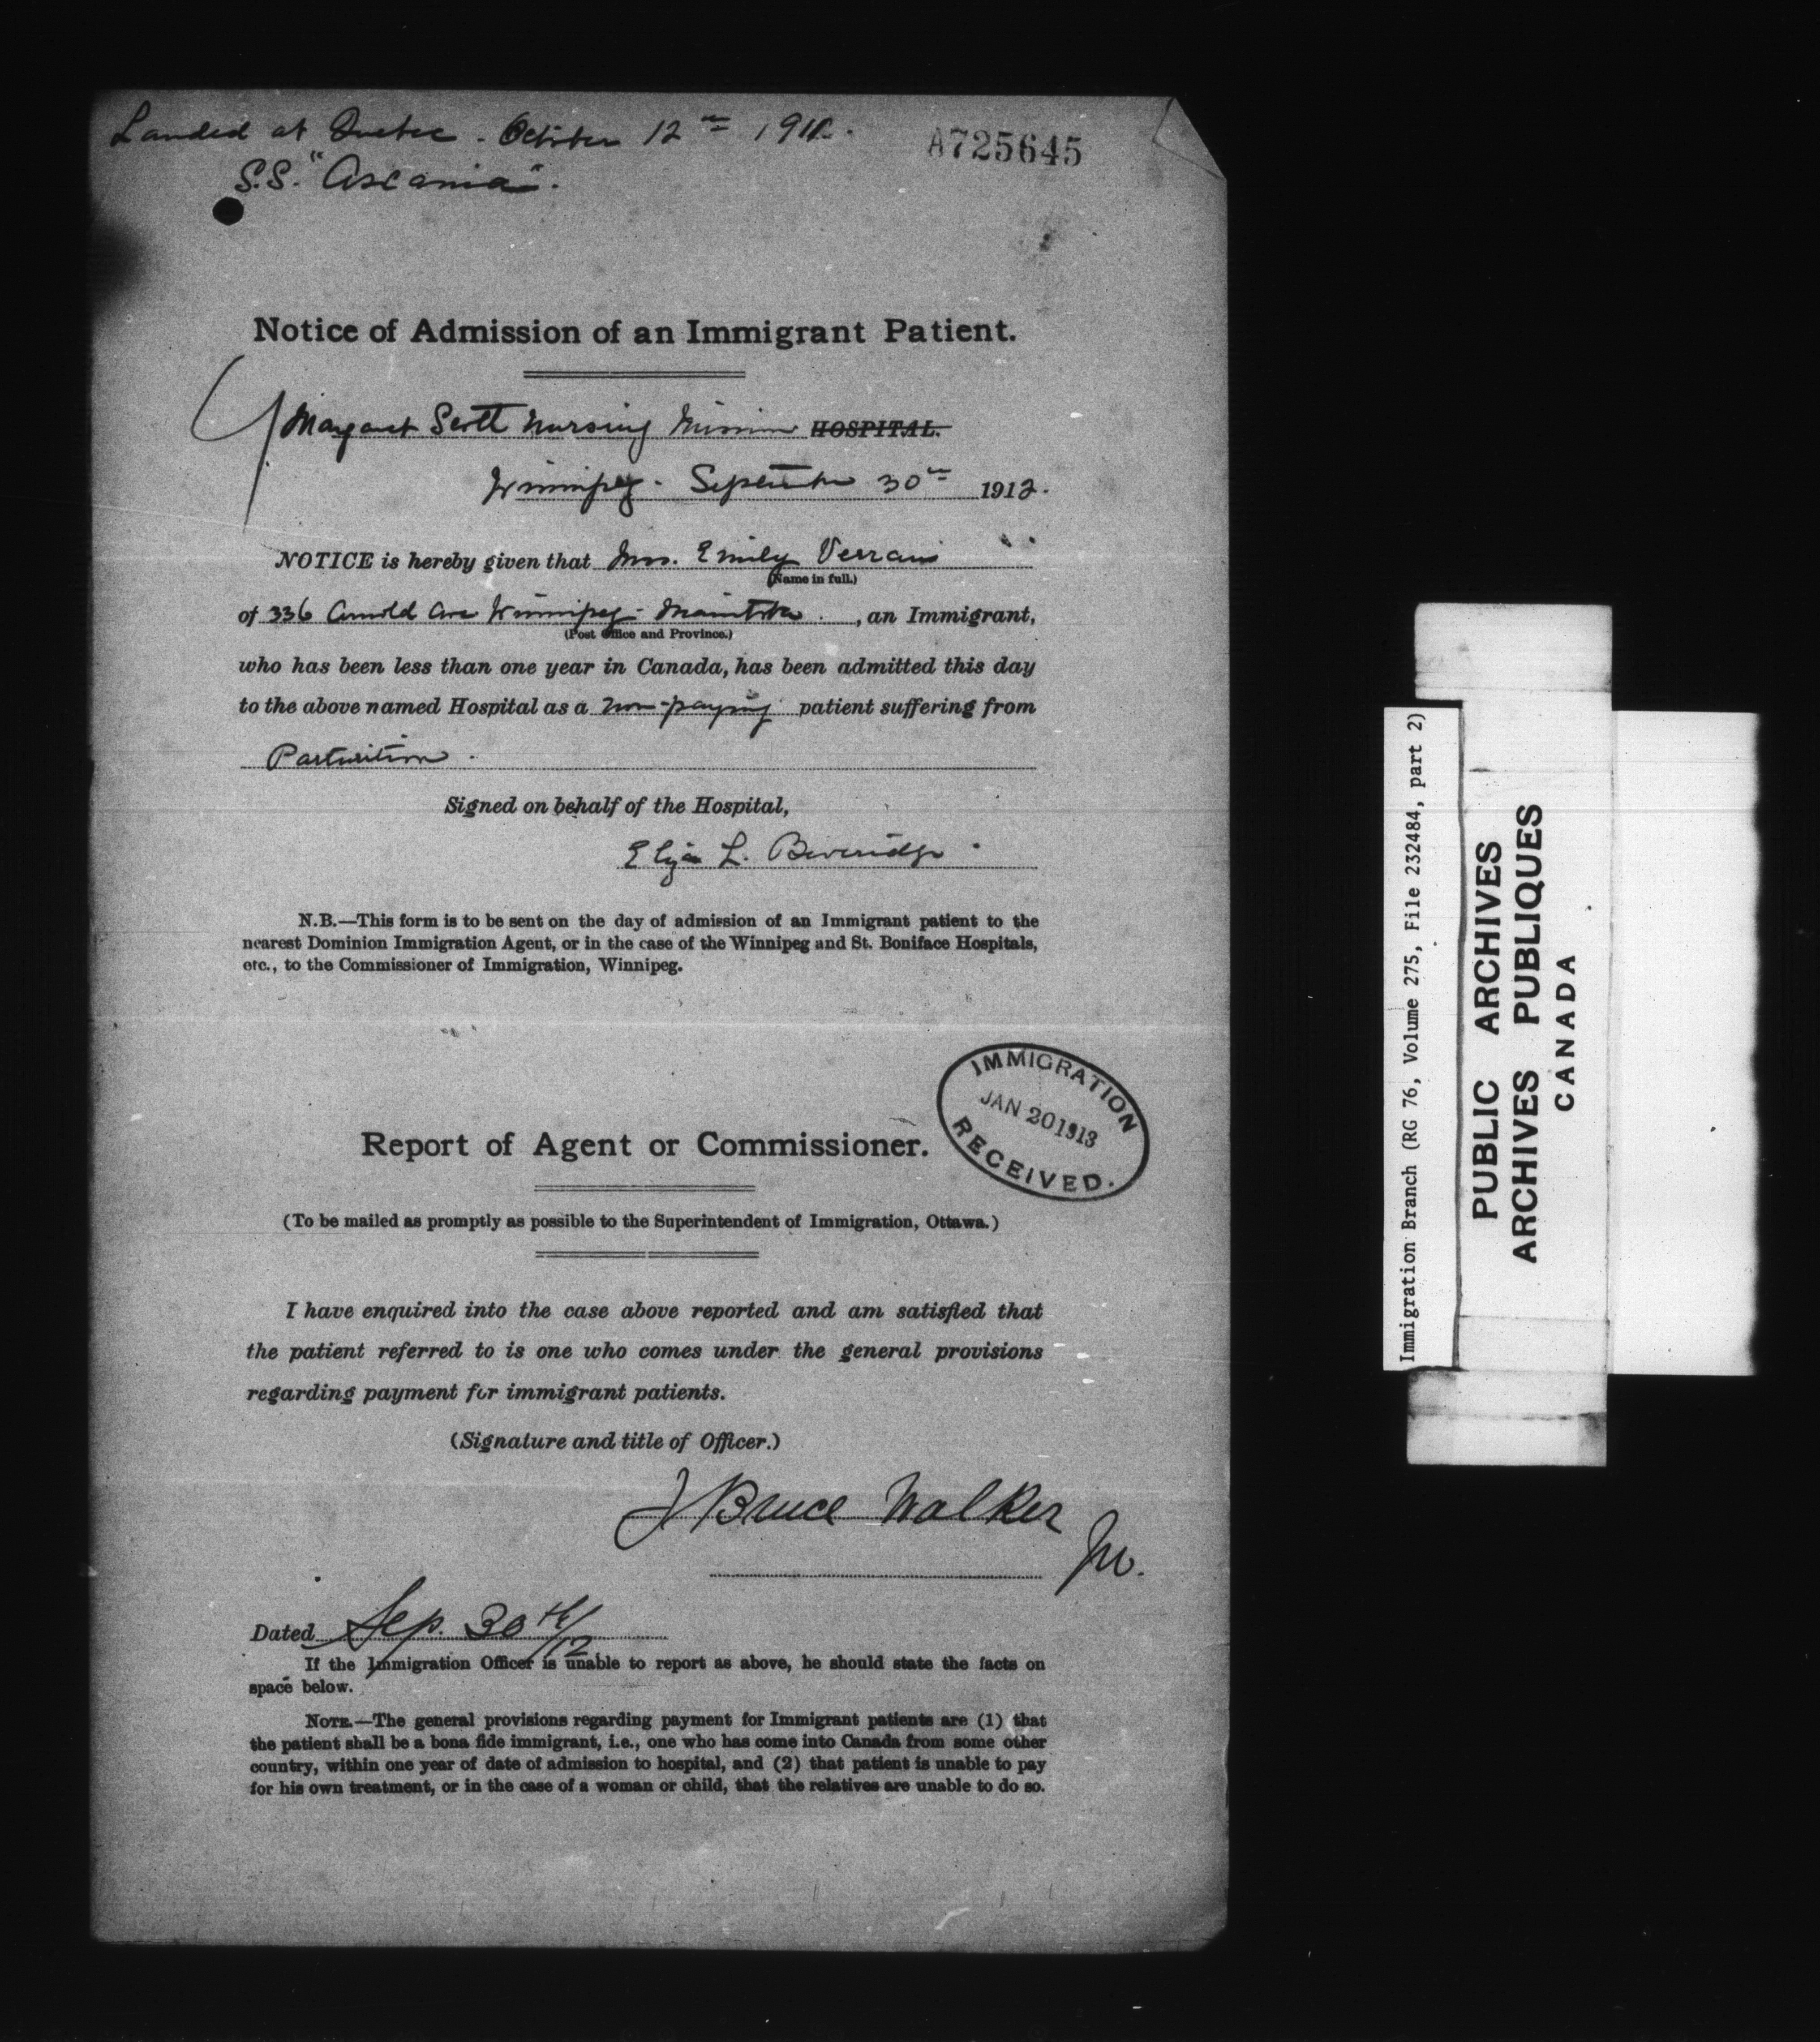 Landed at Quebec - October 12th 1911.
A725645
S.S. "Ascania".
Notice of Admission of an Immigrant Patient.
Margaret Scott Nursing Mission HOSPITAL.
Winnipeg - September 30th 1912.
NOTICE is hereby given that Mrs. Emily Verran
(Name in full.)
of 336 Arnold Ave Winnipeg - Manitoba , an Immigrant,
(Post Office and Province.)
who has been less than one year in Canada, has been admitted this day
to the above named Hospital as a non-paying patient suffering from
Parturition.
Signed on behalf of the Hospital,
Eliza L. Beveridge.
N.B.—This form is to be sent on the day of admission of an Immigrant patient to the
nearest Dominion Immigration Agent, or in the case of the Winnipeg and St. Boniface Hospitals,
etc., to the Commissioner of Immigration, Winnipeg.
IMMIGRATION
JAN 20 1913
RECEIVED.
Report of Agent or Commissioner.
(To be mailed as promptly as possible to the Superintendent of Immigration, Ottawa.)
I have enquired into the case above reported and am satisfied that
the patient referred to is one who comes under the general provisions
regarding payment for immigrant patients.
(Signature and title of Officer.)
J Bruce Walker
Dated Sep. 30th/12
If the Immigration Officer is unable to report as above, he should state the facts on
space below.
NOTE.—The general provisions regarding payment for Immigrant patients are (1) that
the patient shall be a bona fide immigrant, i.e., one who has come into Canada from some other
country, within one year of date of admission to hospital, and (2) that patient is unable to pay
for his own treatment, or in the case of a woman or child, that the relatives are unable to do so.
Immigration Branch (RG 76, Volume 275, File 232484, part 2)
PUBLIC ARCHIVES
ARCHIVES PUBLIQUES
CANADA